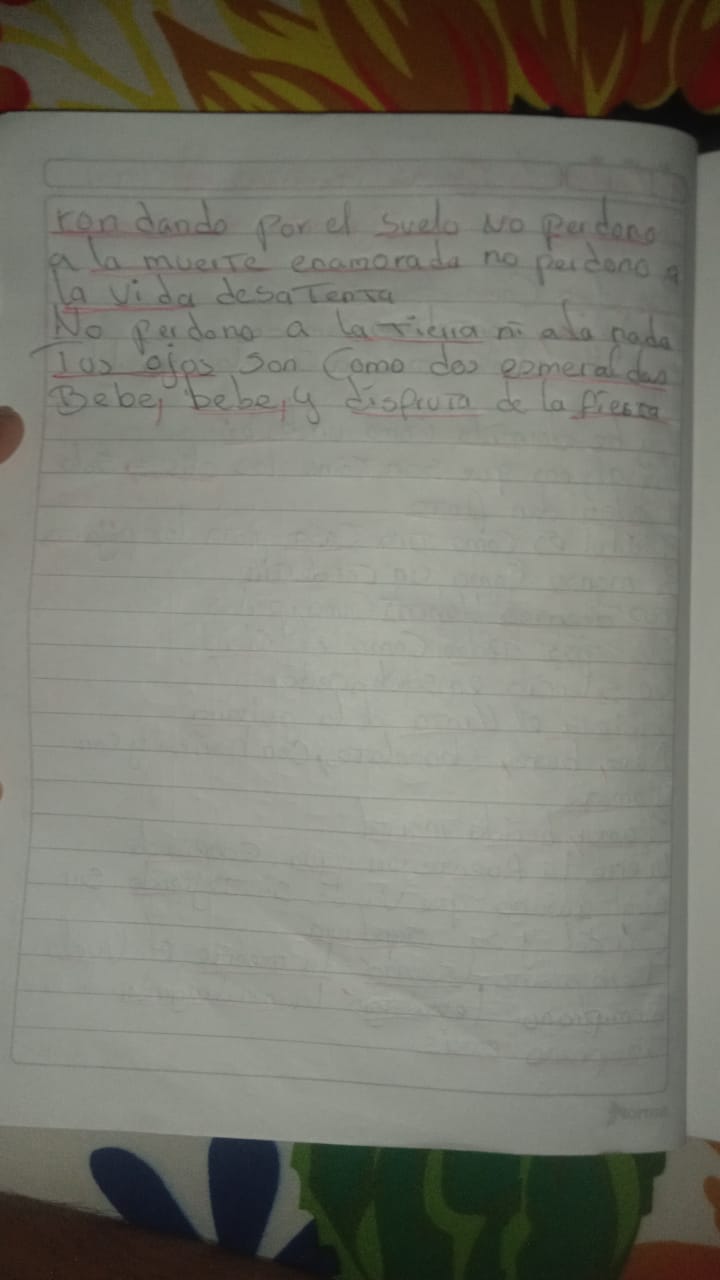 ron dando por el suelo No perdono
a la muerte enamorada no perdono a
la vida desatenta
No perdono a la tierra ni a la nada
Tus ojos son Como dos esmeraldas
Bebe, bebe, y disfruta de la fiesta
norma